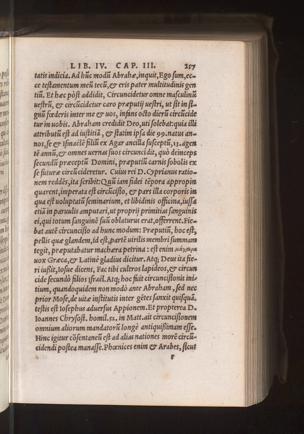 LIB. IV. CAP. III. 257
tatit indicia. Ad hũc modũ Abrahæ, inquit, Ego sum, ec-
ce testamentum meũ tecũ, & eris pater multitudinis gen
tiũ. Et hæc pòst addidit, Circuncidetur omne masculinũ
uestrũ, & circũcidetur caro præputij uestri, ut sit in si-
gnũ fœderis inter me & uos, infans octo dierũ circũcide
tur in uobis. Abraham credidit Deo, uti solebat: quia illi
attributũ est ad iustitiã, & statim ipse die 99. natus an-
nos, se & ismaëlẽ filiũ ex Agar ancilla susceptũ, 13. agen
tẽ annũ, & omnes uernas suos circuncidit, quò deinceps
secundũ præceptũ Domini, præputij carnis sobolis ex
se futuræ circũcideretur. Cuius rei D. Cyprianus ratio-
nem reddẽs, ita scribit: Qui iam fidei tẽpora appropin
quarent, imperata est circũcisio, & pars illa corporis in
qua est uoluptatũ seminarium, et libidinis officina, iussa
etiã in paruulis amputari, ut proprij primitias sanguinis
ei, qui totum sanguinẽ suũ oblaturus erat, offerrent. Fie-
bat autẽ circuncisio ad hunc modum: Præputiũ, hoc est,
pellis quæ glandem, id est, partẽ uirilis membri summam
tegit, præputabatur machæra petrina: est enim
uox Græca, & Latinè gladius dicitur. Atq; Deus ita fie-
ri iussit, Iosue dicens, Fac tibi cultros lapideos, & circun
cide secundò filios israël. Atq; hoc fuit circuncisionis ini
tium, quandoquidem non modò ante Abraham, sed nec
prior Mose, de uitæ institutis inter gẽtes sanxit quisquã,
testis est Iosephus aduersus Appionem. Et propterea D.
Ioannes Chrysost. homil. 52. in Matt. ait circuncisionem
omnium aliorum mandatorũ longè antiquissimam esse.
Hinc igitur cõsentaneũ est ad alias nationes morẽ circũ-
cidendi postea manasse. Phœnices enim & Arabes, sicut
r